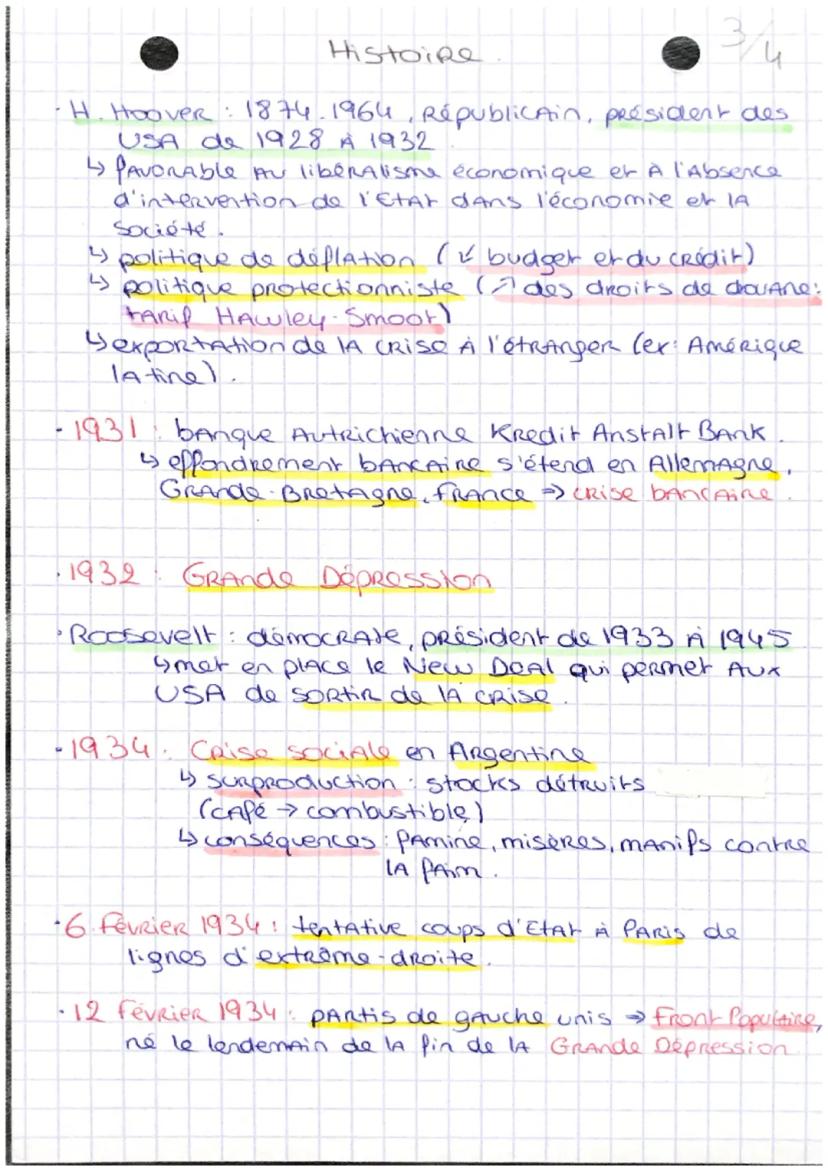 3/4
Histoire
· H. Hoover : 1874-1964, Républicain, président des
USA de 1928 à 1932
↳ favorable au libéralisme économique et à l'absence
d'intervention de l'Etat dans l'économie et la
société.
↳ politique de déflation (↙ budget et du crédit)
↳ politique protectionniste (↗ des droits de douane :
tarif Hawley-Smoot)
↳ exportation de la crise à l'étranger (ex: Amérique
latine).
- 1931 : banque Autrichienne Kredit Anstalt Bank.
↳ effondrement bancaire s'étend en Allemagne,
Grande-Bretagne, France => crise bancaire.
· 1932 : Grande Dépression
· Roosevelt : démocrate, président de 1933 à 1945
↳ met en place le New Deal qui permet aux
USA de sortir de la crise.
- 1934 : Crise sociale en Argentine
↳ surproduction : stocks détruits
(café → combustible)
↳ conséquences : famine, misères, manifs contre
la faim.
· 6 Février 1934 : tentative coups d'Etat à Paris de
lignes d'extrême-droite.
· 12 Février 1934 : partis de gauche unis → Front Populaire,
né le lendemain de la fin de la Grande Dépression